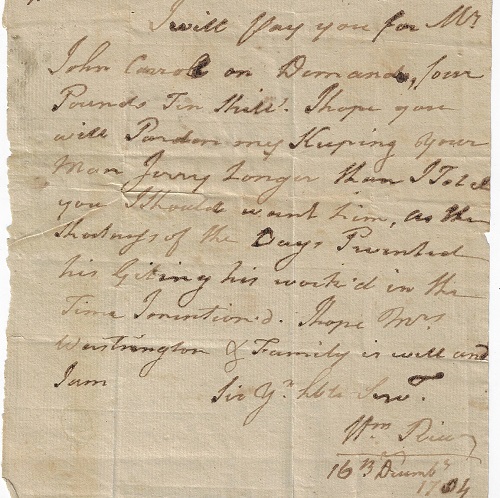 I will pay you for Mr
John Caroll on Demand, four
Pounds Ten Shill'. I hope you
will Pardon my Keeping your
Man Jerry Longer than I Told
you I Should want him, as the
Shortness of the Days Prevented
his Giting his work'd in the
Time I mention'd. I hope Mrs
& Family is well and
I am Sir Yr. Hble Servt.
Wm
16th Decembr